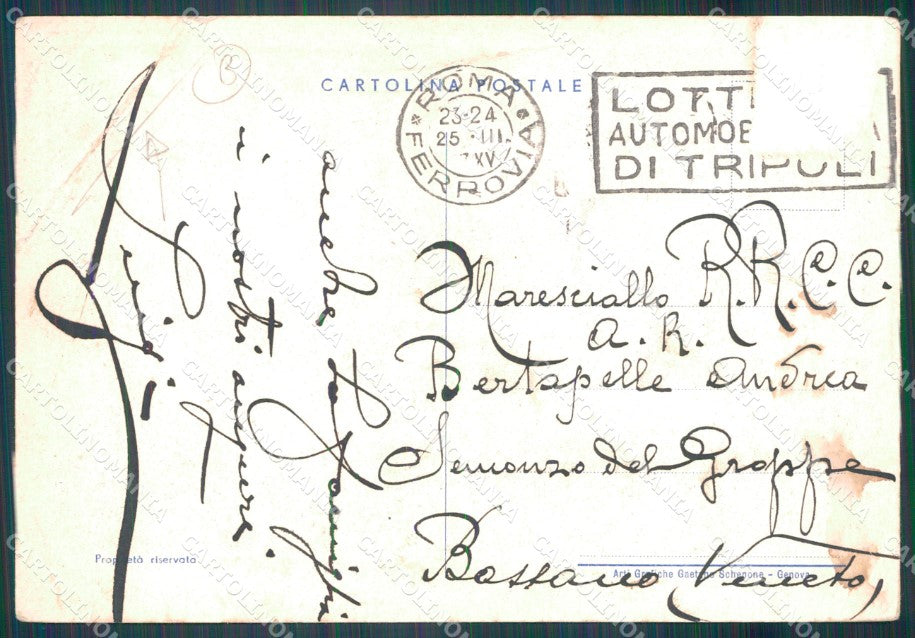 CARTOLINA POSTALE
ROMA
23-24
25 III
XV
FERROVIA
LOTT
AUTOMOB A
DI TRIPOLI
Maresciallo R.R.C.C.
a. R.
Bertapelle Andrea
Semonzo del Grappa
Bassano (Veneto)
anche la famiglia
i nostri auguri.
Proprietà riservata
Arti Grafiche Gaetano Schenone - Genova
CARTOLINOMANIA